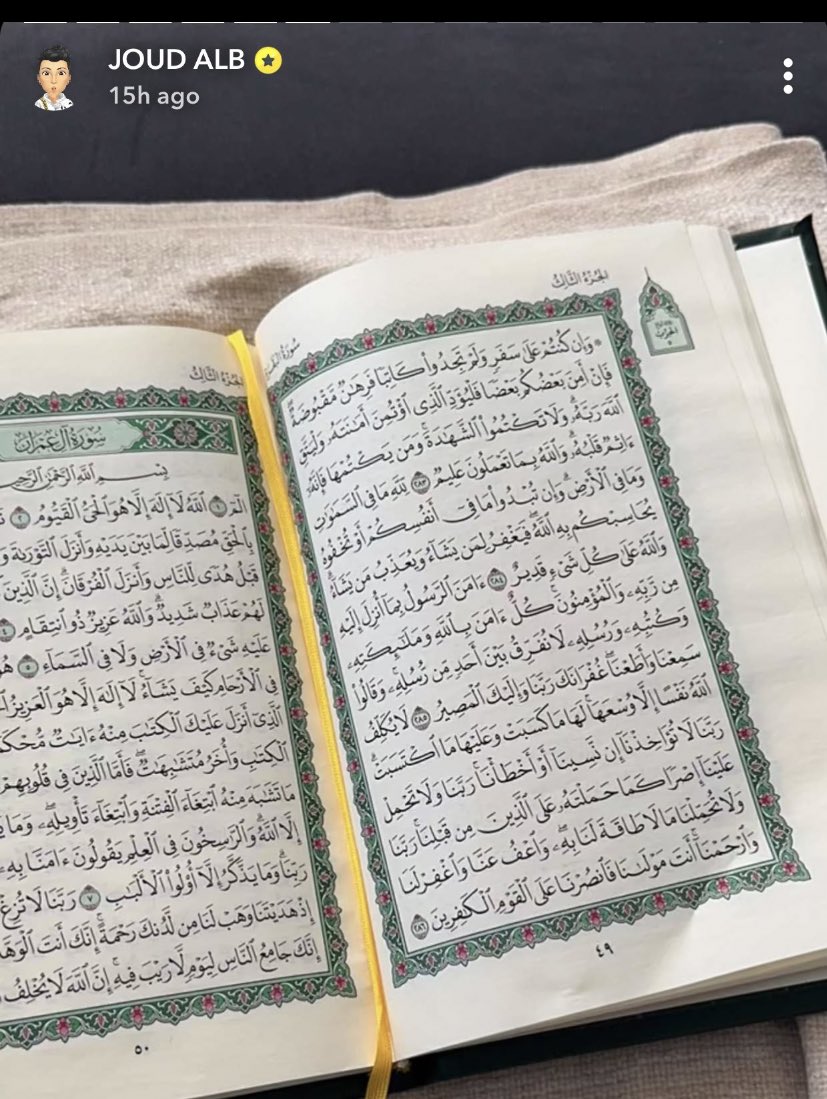 JOUD ALB
15h ago
الجزء الثالث
سورة البقرة
وَإِن كُنتُمْ عَلَىٰ سَفَرٍ وَلَمْ تَجِدُوا۟ كَاتِبًا فَرِهَـٰنٌ مَّقْبُوضَةٌ
فَإِنْ أَمِنَ بَعْضُكُم بَعْضًا فَلْيُؤَدِّ الَّذِى اؤْتُمِنَ أَمَـٰنَتَهُۥ وَلْيَتَّقِ
اللَّهَ رَبَّهُۥ وَلَا تَكْتُمُوا۟ الشَّهَـٰدَةَ وَمَن يَكْتُمْهَا فَإِنَّهُۥٓ
ءَاثِمٌ قَلْبُهُۥ وَاللَّهُ بِمَا تَعْمَلُونَ عَلِيمٌ ٢٨٣ لِّلَّهِ مَا فِى السَّمَـٰوَٰتِ
وَمَا فِى الْأَرْضِ وَإِن تُبْدُوا۟ مَا فِىٓ أَنفُسِكُمْ أَوْ تُخْفُوهُ
يُحَاسِبْكُم بِهِ اللَّهُ فَيَغْفِرُ لِمَن يَشَآءُ وَيُعَذِّبُ مَن يَشَآءُ
وَاللَّهُ عَلَىٰ كُلِّ شَىْءٍ قَدِيرٌ ٢٨٤ ءَامَنَ الرَّسُولُ بِمَآ أُنزِلَ إِلَيْهِ
مِن رَّبِّهِۦ وَالْمُؤْمِنُونَ كُلٌّ ءَامَنَ بِاللَّهِ وَمَلَـٰٓئِكَتِهِۦ
وَكُتُبِهِۦ وَرُسُلِهِۦ لَا نُفَرِّقُ بَيْنَ أَحَدٍ مِّن رُّسُلِهِۦ وَقَالُوا۟
سَمِعْنَا وَأَطَعْنَا غُفْرَانَكَ رَبَّنَا وَإِلَيْكَ الْمَصِيرُ ٢٨٥ لَا يُكَلِّفُ
اللَّهُ نَفْسًا إِلَّا وُسْعَهَا لَهَا مَا كَسَبَتْ وَعَلَيْهَا مَا اكْتَسَبَتْ
رَبَّنَا لَا تُؤَاخِذْنَآ إِن نَّسِينَآ أَوْ أَخْطَأْنَا رَبَّنَا وَلَا تَحْمِلْ
عَلَيْنَآ إِصْرًا كَمَا حَمَلْتَهُۥ عَلَى الَّذِينَ مِن قَبْلِنَا رَبَّنَا
وَلَا تُحَمِّلْنَا مَا لَا طَاقَةَ لَنَا بِهِۦ وَاعْفُ عَنَّا وَاغْفِرْ لَنَا
وَارْحَمْنَآ أَنتَ مَوْلَىٰنَا فَانصُرْنَا عَلَى الْقَوْمِ الْكَـٰفِرِينَ ٢٨٦
٤٩
الجزء الثالث
سورة آل عمران
بِسْمِ اللَّهِ الرَّحْمَـٰنِ الرَّحِيمِ
الٓمٓ ١ اللَّهُ لَآ إِلَـٰهَ إِلَّا هُوَ الْحَىُّ الْقَيُّومُ ٢
بِالْحَقِّ مُصَدِّقًا لِّمَا بَيْنَ يَدَيْهِ وَأَنزَلَ التَّوْرَىٰةَ
قَبْلُ هُدًى لِّلنَّاسِ وَأَنزَلَ الْفُرْقَانَ إِنَّ الَّذِينَ
لَهُمْ عَذَابٌ شَدِيدٌ وَاللَّهُ عَزِيزٌ ذُو انتِقَامٍ ٤
عَلَيْهِ شَىْءٌ فِى الْأَرْضِ وَلَا فِى السَّمَآءِ ٥
فِى الْأَرْحَامِ كَيْفَ يَشَآءُ لَآ إِلَـٰهَ إِلَّا هُوَ الْعَزِيزُ
الَّذِىٓ أَنزَلَ عَلَيْكَ الْكِتَـٰبَ مِنْهُ ءَايَـٰتٌ
الْكِتَـٰبِ وَأُخَرُ مُتَشَـٰبِهَـٰتٌ فَأَمَّا الَّذِينَ فِى قُلُوبِهِمْ
مَا تَشَـٰبَهَ مِنْهُ ابْتِغَآءَ الْفِتْنَةِ وَابْتِغَآءَ تَأْوِيلِهِۦ وَمَا
إِلَّا اللَّهُ وَالرَّٰسِخُونَ فِى الْعِلْمِ يَقُولُونَ ءَامَنَّا بِهِۦ
رَبِّنَا وَمَا يَذَّكَّرُ إِلَّآ أُو۟لُوا۟ الْأَلْبَـٰبِ ٧ رَبَّنَا لَا تُزِغْ
إِذْ هَدَيْتَنَا وَهَبْ لَنَا مِن لَّدُنكَ رَحْمَةً إِنَّكَ أَنتَ
إِنَّكَ جَامِعُ النَّاسِ لِيَوْمٍ لَّا رَيْبَ فِيهِ إِنَّ اللَّهَ لَا يُخْلِفُ
٥٠